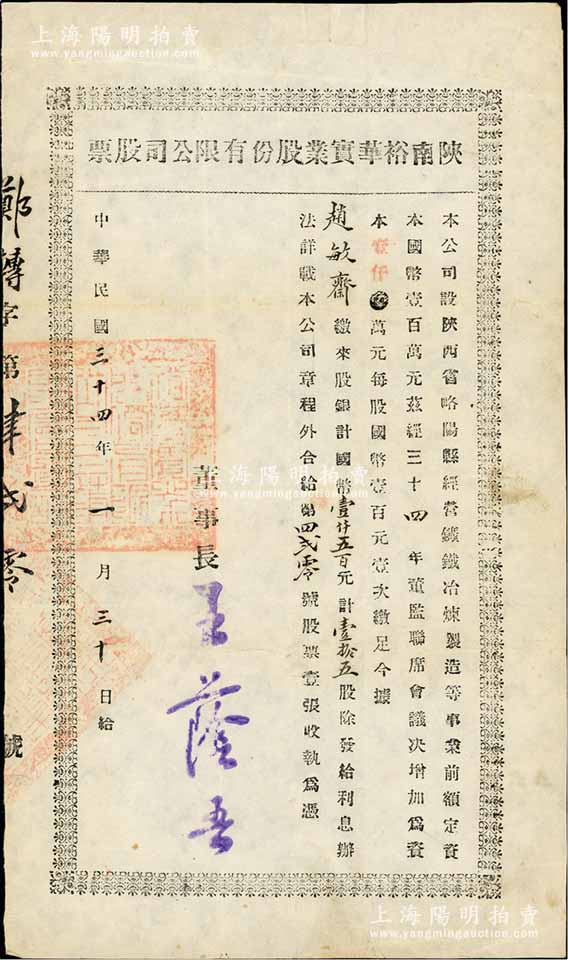 上海陽明拍賣
www.yangmingauction.com
陝南裕華實業股份有限公司股票
本公司設陝西省略陽縣經營鑛鐵冶煉製造等事業前額定資
本國幣壹百萬元茲經三十四年董監聯席會議决增加爲資
本壹仟萬元每股國幣壹百元壹次繳足今據
趙敏齋繳來股銀計國幣壹仟五百元計壹拾五股除發給利息辦
法詳載本公司章程外合給第四弍零號股票壹張收執爲憑
董事長王蔭吾
中華民國三十四年一月三十日給
字第肆弍零號
上海陽明拍賣
www.yangmingauction.com
上海陽明拍賣
www.yangmingauction.com